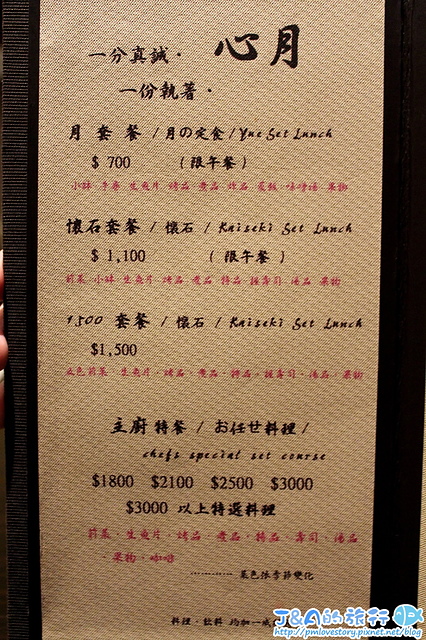 心月
一分真誠．
一份執著．
月套餐 / 月の定食 / Yue Set Lunch
$ 700 （限午餐）
小缽 手卷 生魚片 烤品 煮品 炸品 食飯 味噌湯 果物
懷石套餐 / 懷石 / Kaiseki Set Lunch
$ 1,100 （限午餐）
前菜 小缽 生魚片 烤品 煮品 特品 握壽司 湯品 果物
1,500 套餐 / 懷石 / Kaiseki Set Lunch
$1,500
五色前菜．生魚片．烤品．煮品．特品．握壽司．湯品．果物
主廚特餐 / お任せ料理 /
chefs special set course
$1800 $2100 $2500 $3000
$3000 以上特選料理
前菜．生魚片．烤品．煮品．特品．壽司．湯品
．果物．咖啡
………… 菜色依季節變化
料理．飲料 均加一成
J&A的旅行
http://pmlovestory.pixnet.net/blog